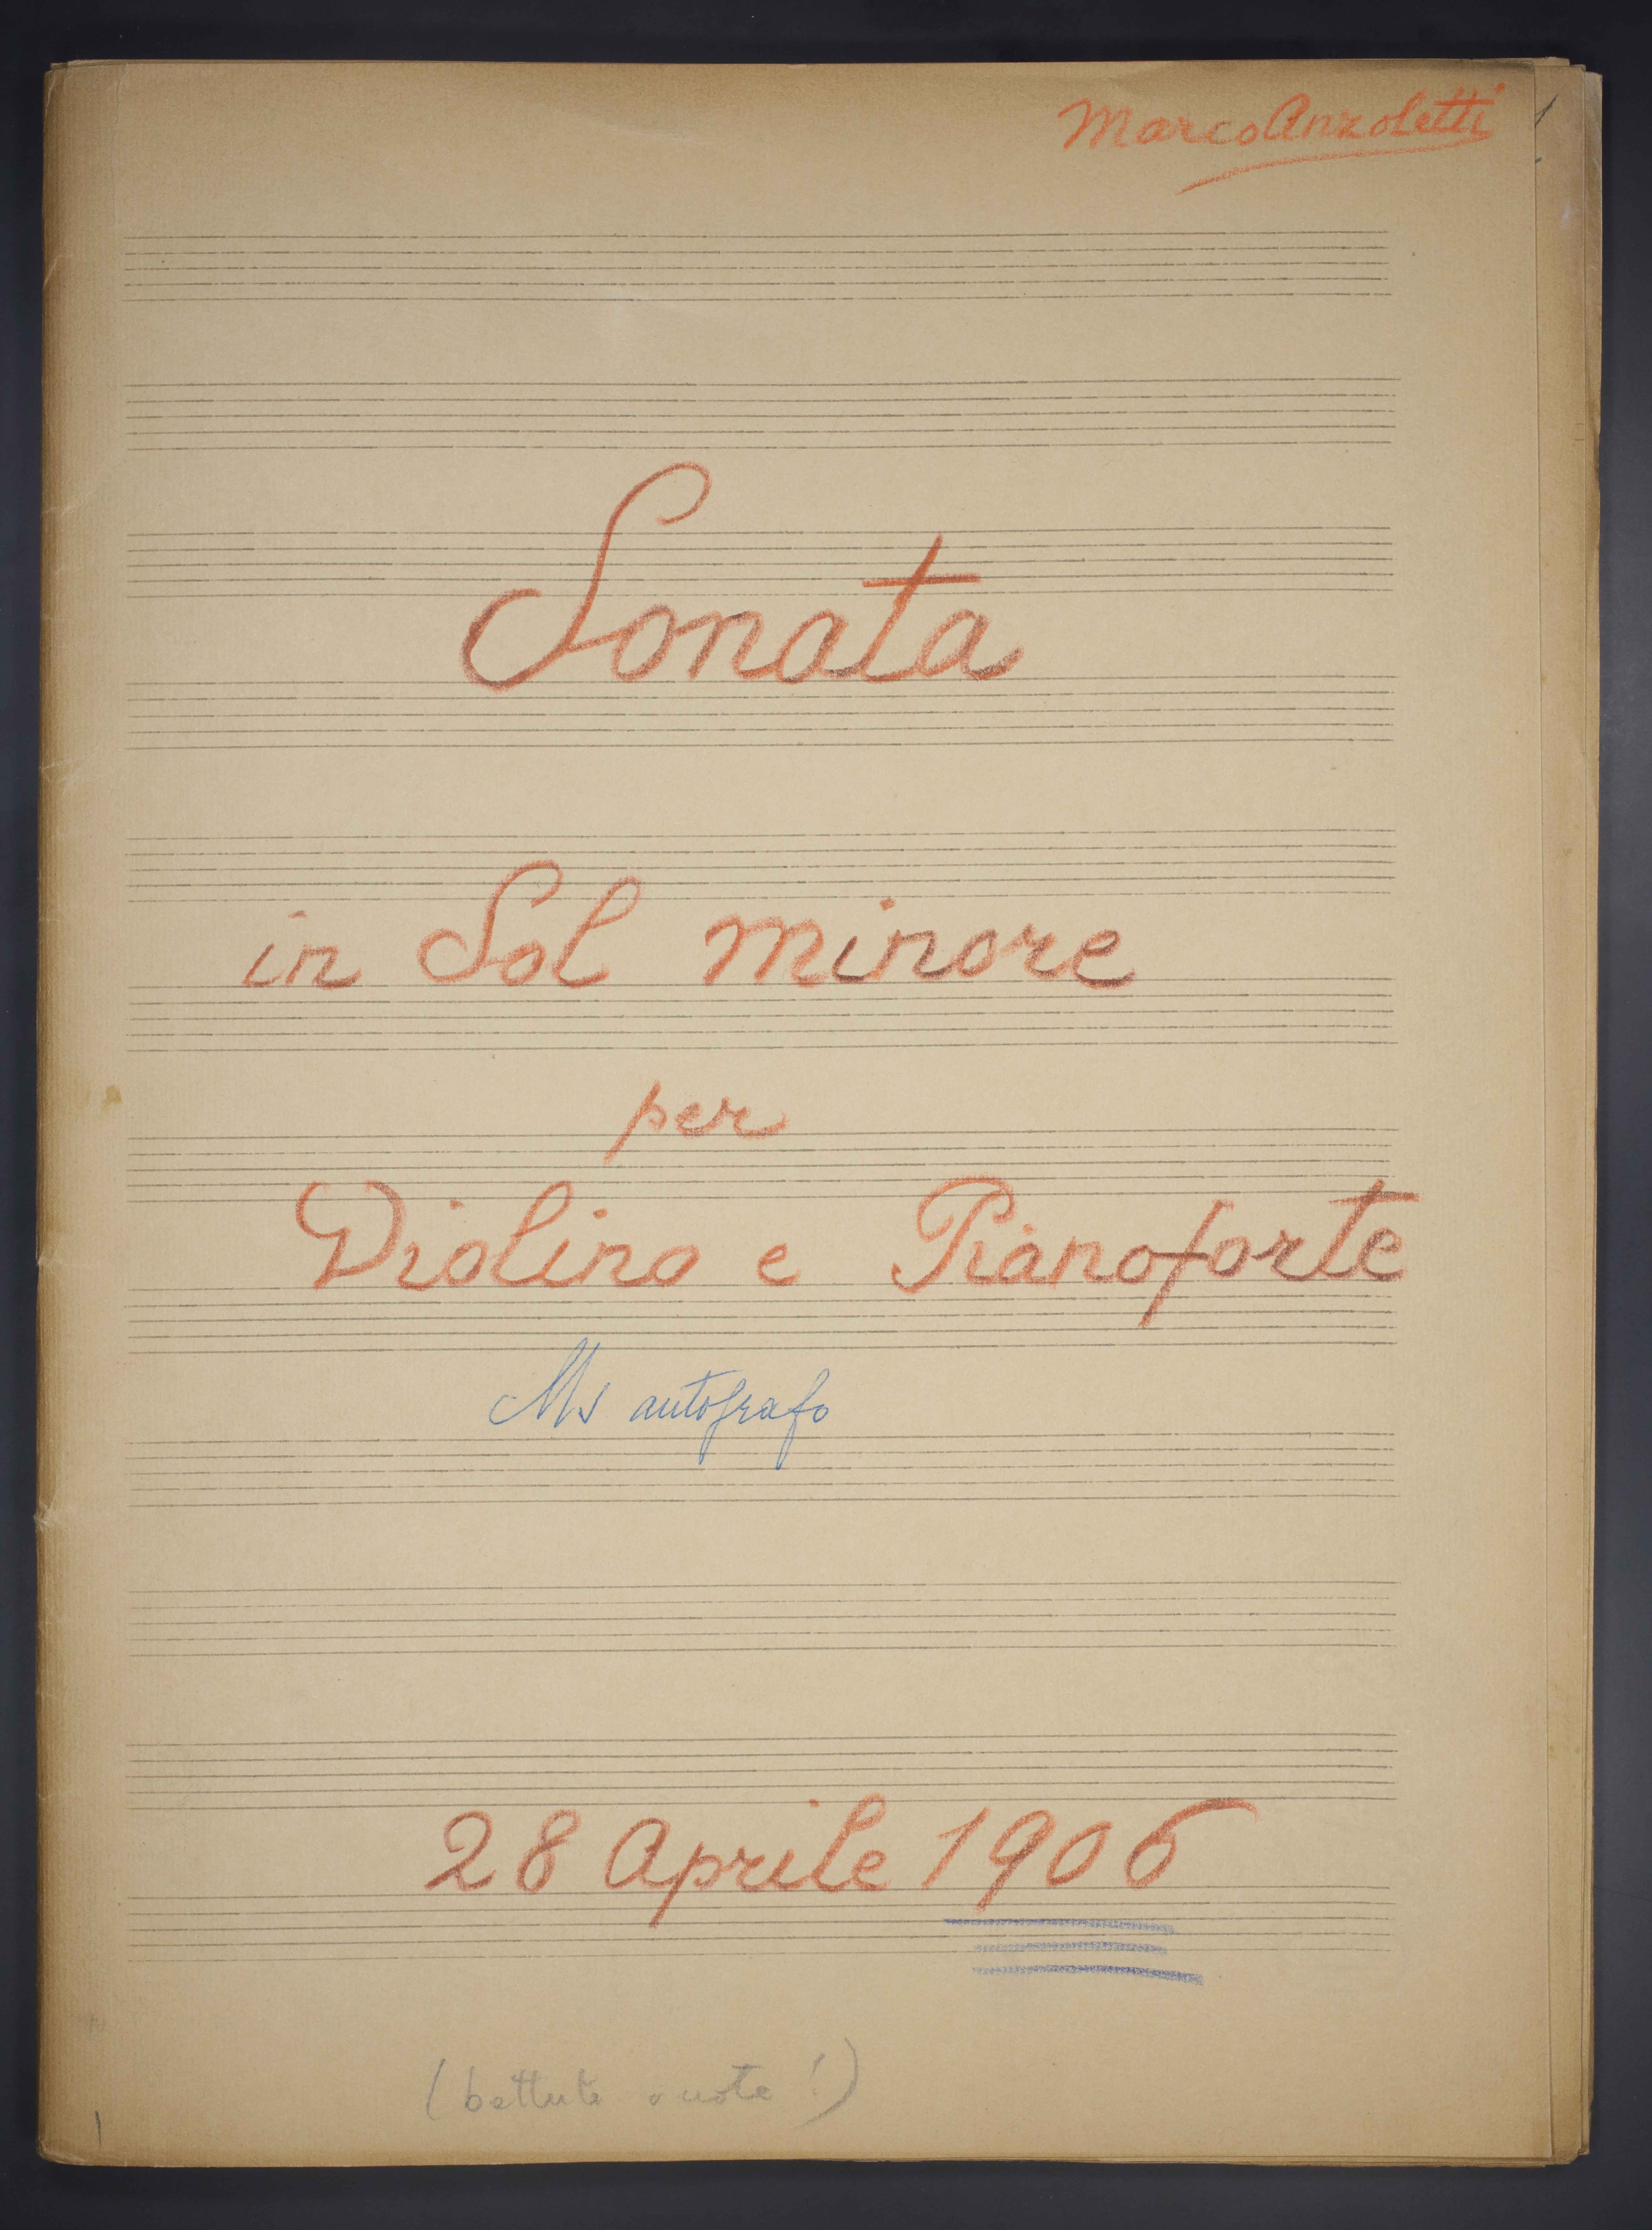 Marco Anzoletti
Sonata
in Sol minore
per
Violino e Pianoforte
Ms autografo
28 Aprile 1906
(battute vuote!)